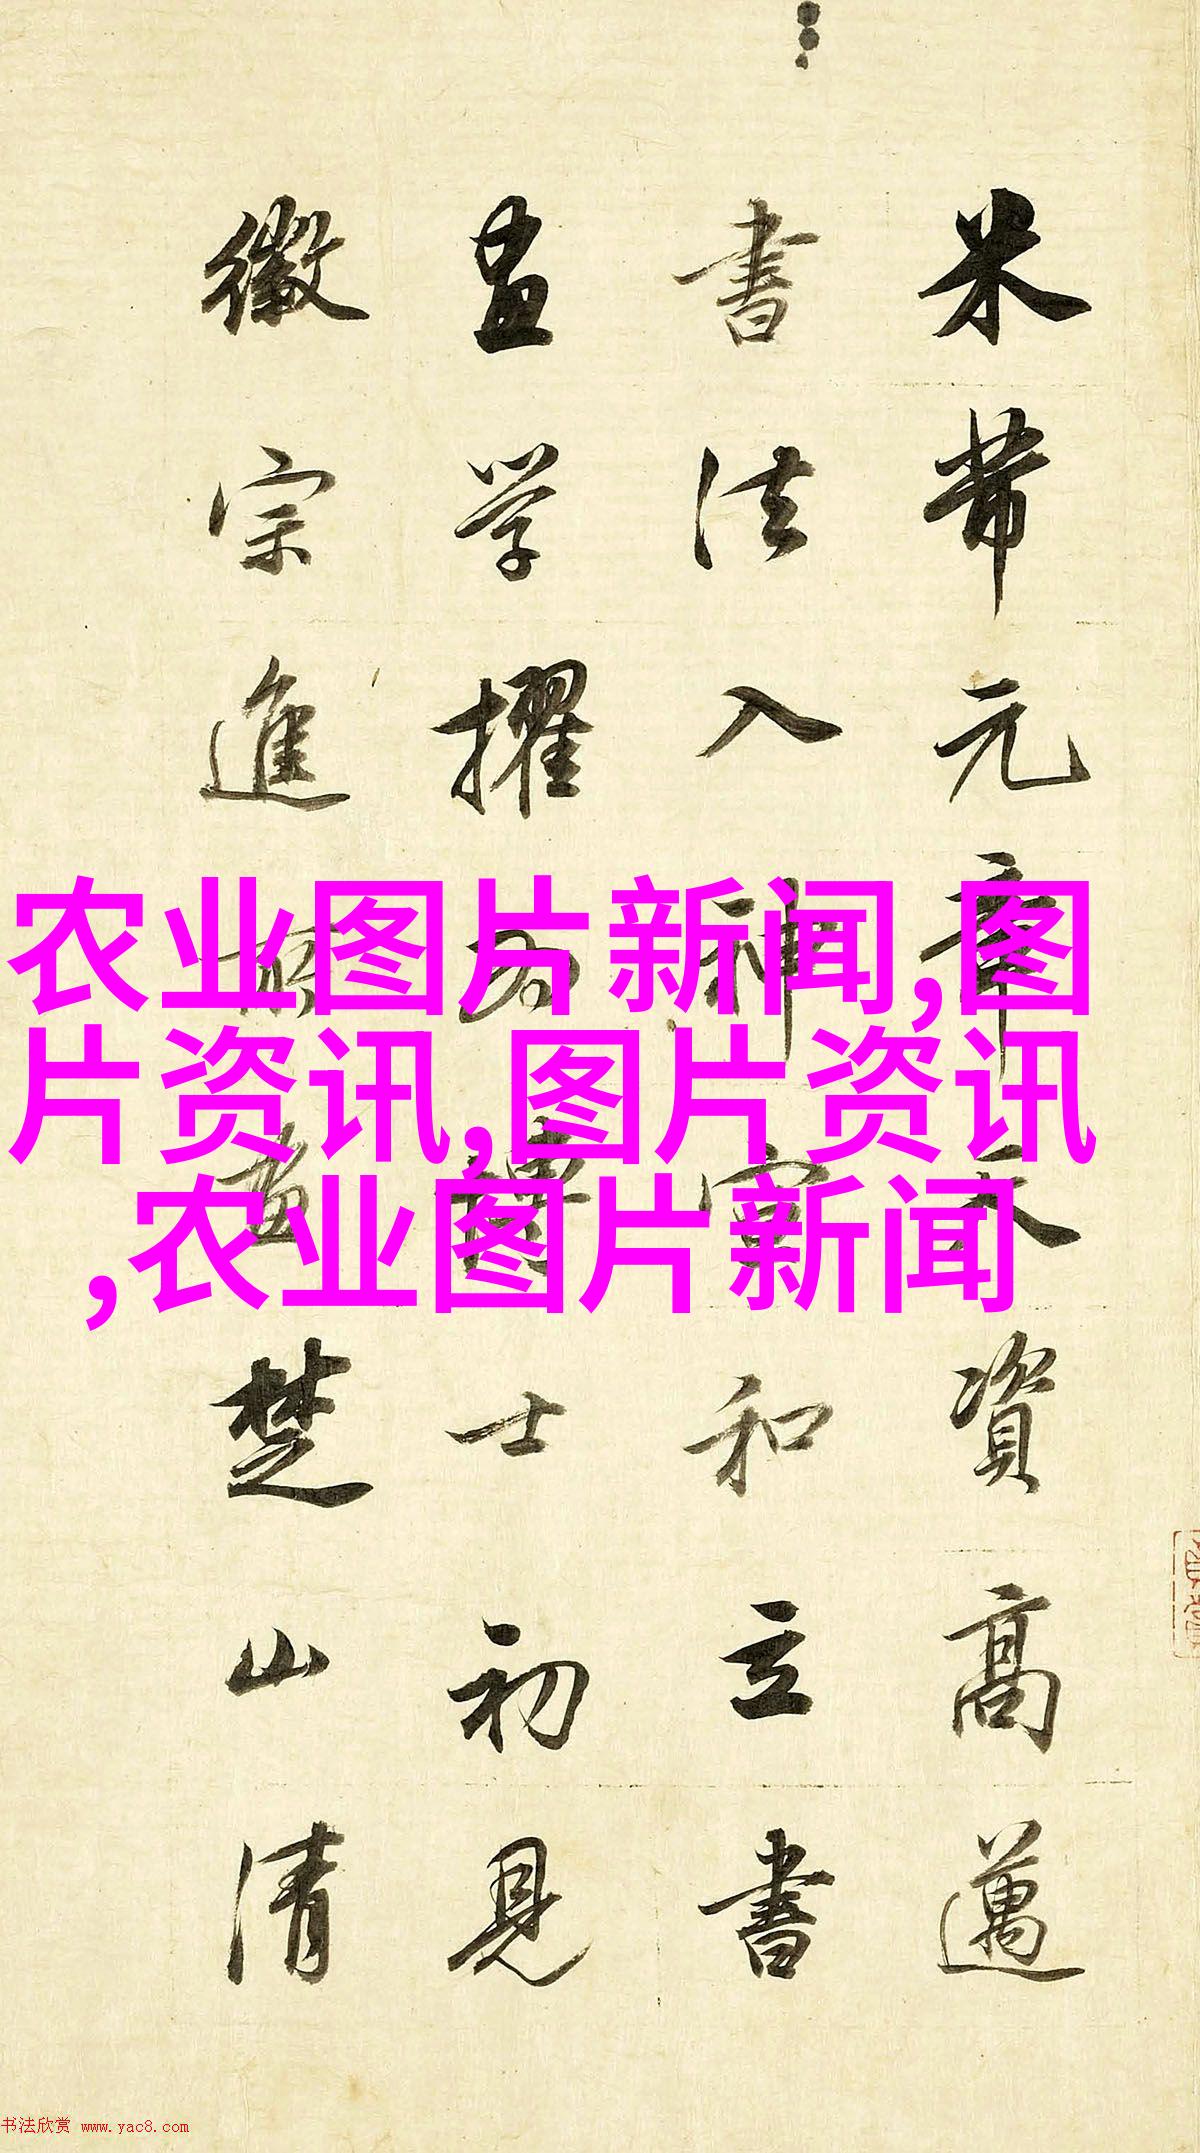 米芾元章天資高邁
書法入神宣和立書
畫學擢為博士初見
徽宗進所畫楚山清
农业图片新闻,图
片资讯,图片资讯
,农业图片新闻
书法欣赏 www.yac8.com